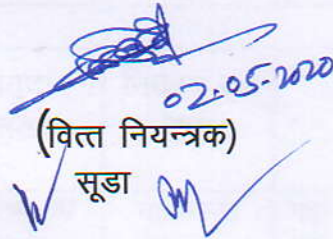 02.05.2020
(वित्त नियन्त्रक)
सूडा